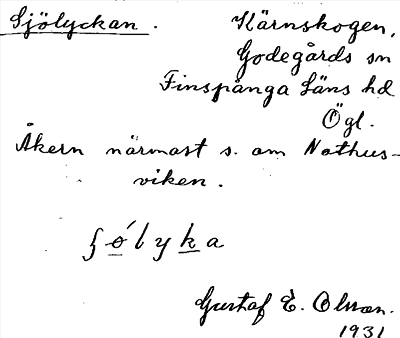 Sjölyckan. Kärnskogen,
Godegårds sn
Finspånga Läns hd
Ögl.
Åkern närmast s. om Nothus-
viken.
ʃó̱lyḵa
Gustaf E. Olsson.
1931